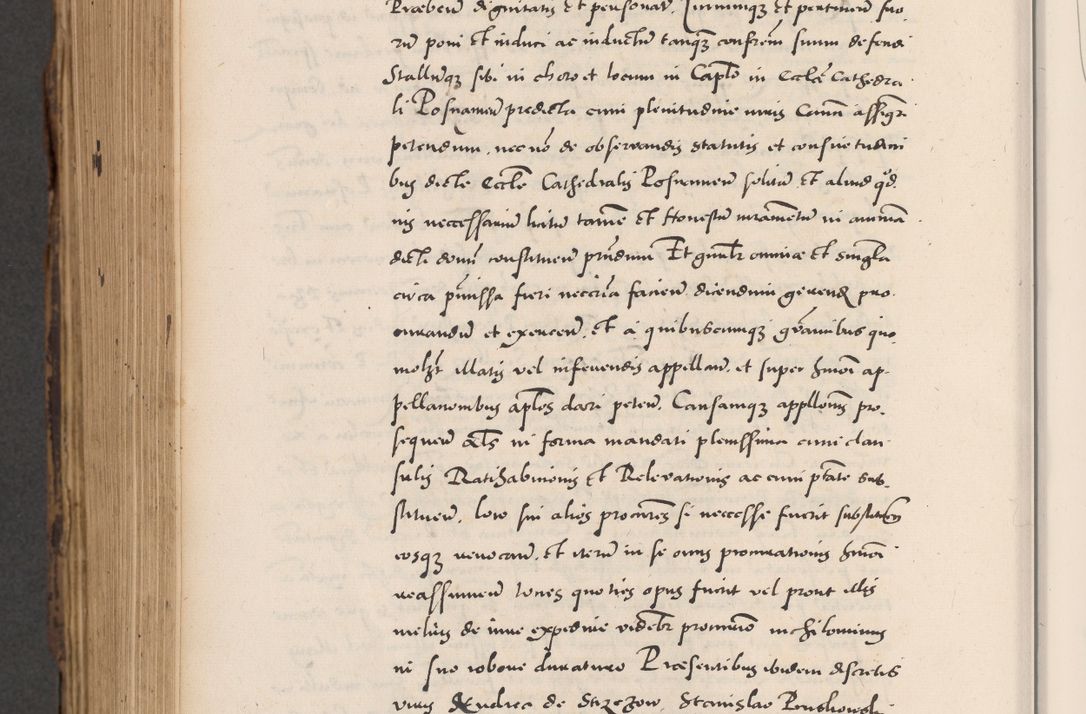 Præbend dignitatis et personat. Juriumq3 et pertinend suo
ru poni et induci ac inductu tanq3 confrem suum defendi
Stallumq3 sibi in choro et locum in Caplo in Eccle Cathedra
li Posnanien predicta cum plenitudine iuris Canci assigri
petendum. nec no de observandis statutis et consuetudini
bus dicte Eccle Cathedralis Posnanien solitu. et aliud qd.
vis neccessarium licitu tame et Honestu iurametu in animam
dicti domi constituen prestandum Et gnalr omnia et singla
circa pmissa fieri neccria faciend dicendum gerend pro
curandu et exercend. et a quibuscumq3 gravaminibus quo
molzt illatis vel inferendis appelland. et super hmoi ap
pellationibus aplos dari petend. Causamq3 appllonis pro
sequend als in forma mandati plenissima cum clau
sulis Ratihabitionis et Relevationis ac cum ptate sub
stituend. loco sui alios procures si neccesse fuerit substituen
eosq3 revocand. et iteru in se onus procurationis hmoi
reassumend toties quoties opus fuerit vel prout illis
melius de iure expedire videbr procurio nichilominus
in suo robore duraturo Præsentibus ibidem discretis
viris Andrea de Strzezow. Stanislao